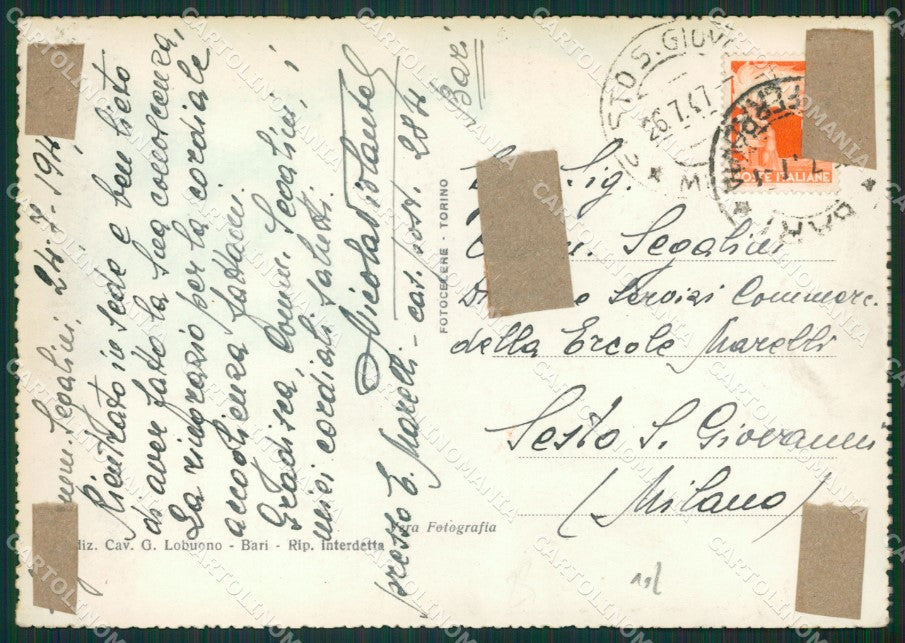 24-7-1947
Comm. Segalini,
Rientrato in sede e ben lieto
di aver fatto la sua conoscenza,
La ringrazio per la cordiale
accoglienza fattami.
Gradisca, Comm. Segalini, i
miei cordiali saluti
Nicola Violante
presso E. Marelli - cas. post. 284
Bari
FOTOCELERE - TORINO
SESTO S. GIOV
26.7.47
MI
POSTE ITALIANE
Sig.
Comm. Segalini
Servizi Commerc.
della Ercole Marelli
Sesto S. Giovanni
(Milano)
Vera Fotografia
diz. Cav. G. Lobuono - Bari - Rip. Interdetta
CARTOLINOMANIA